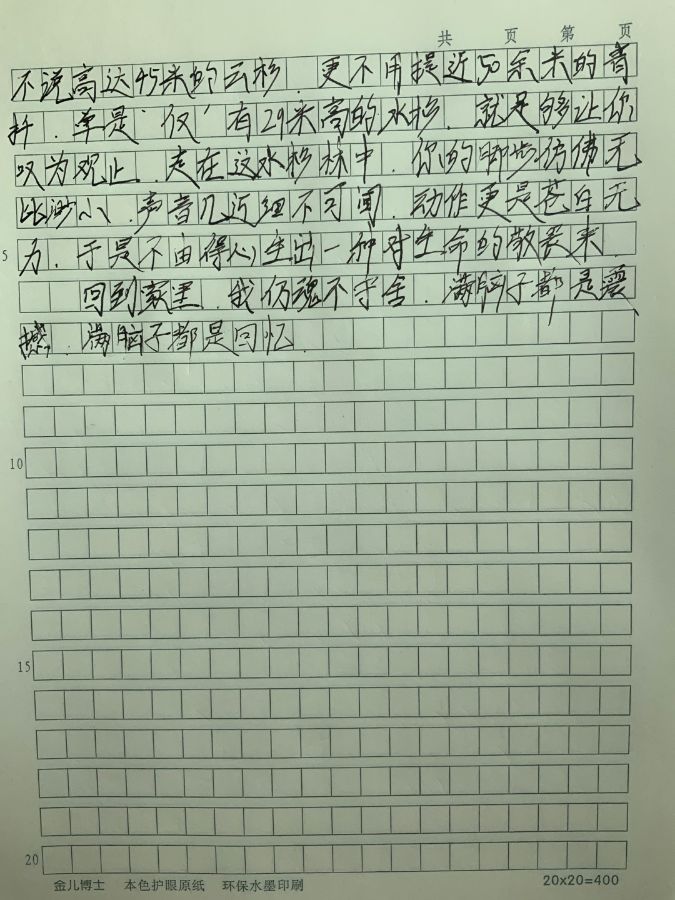 共 页 第 页
不说高达45米的云杉，更不用提近50余米的青
扦，单是“仅”有29米高的水杉，就足够让你
叹为观止。走在这水杉林中，你的脚步仿佛无
比渺小，声音几近细不可闻，动作更是苍白无
5 力，于是不由得心生出一种对生命的敬畏来。
回到家里，我仍魂不守舍，满脑子都是震
撼，满脑子都是回忆。
10
15
20
金儿博士 本色护眼原纸 环保水墨印刷 20x20=400